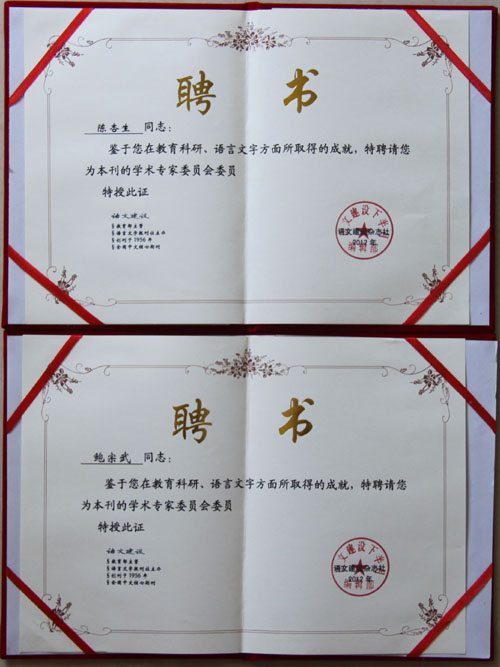 聘 书
陈杏生 同志：
鉴于您在教育科研、语言文字方面所取得的成就，特聘请您
为本刊的学术专家委员会委员
特授此证
语文建设
§教育部主管
§语言文字报刊社主办
§创刊于1956年
§全国中文核心期刊
语文建设杂志社
2012年
编辑部
聘 书
鲍宗武 同志：
鉴于您在教育科研、语言文字方面所取得的成就，特聘请您
为本刊的学术专家委员会委员
特授此证
语文建设
§教育部主管
§语言文字报刊社主办
§创刊于1956年
§全国中文核心期刊
语文建设杂志社
2012年
编辑部